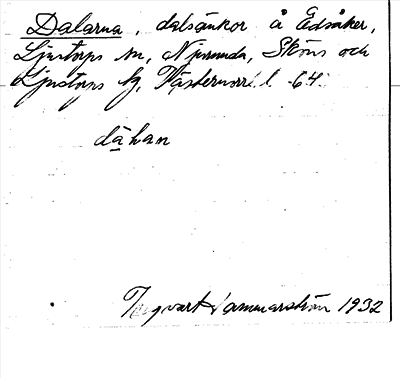 Dalarna, dalsänkor å Edsåker,
Ljustorps sn, Njurunda, Sköns och
Ljustorps tg, Västernorrl. l. 64.
dạ̈han
Ingvar Hammarström 1932